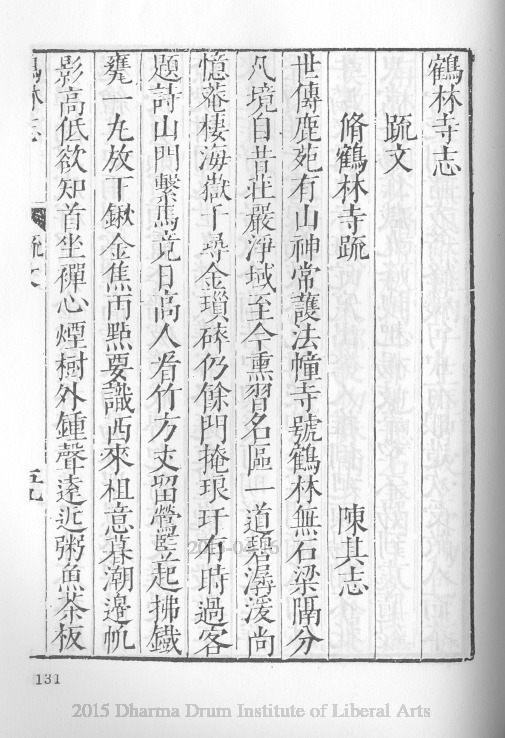 鶴林寺志
疏文
脩鶴林寺疏 陳其志
世傳鹿苑有山神常護法幢寺號鶴林無石梁隔分
凡境自昔莊嚴淨域至今熏習名區一道碧潺湲尚
憶菴棲海嶽千尋金瑣碎仍餘門掩琅玕有時過客
題詩山門繫馬竟日高人看竹方丈留鶯起拂鐵
甕一九放下鍬金焦丙點要識西來祖意暮潮邊帆
影高低欲知首坐禪心煙樹外鍾聲遠近粥魚茶板
鶴林寺志 疏文 五
131
2015 Dharma Drum Institute of Liberal Arts